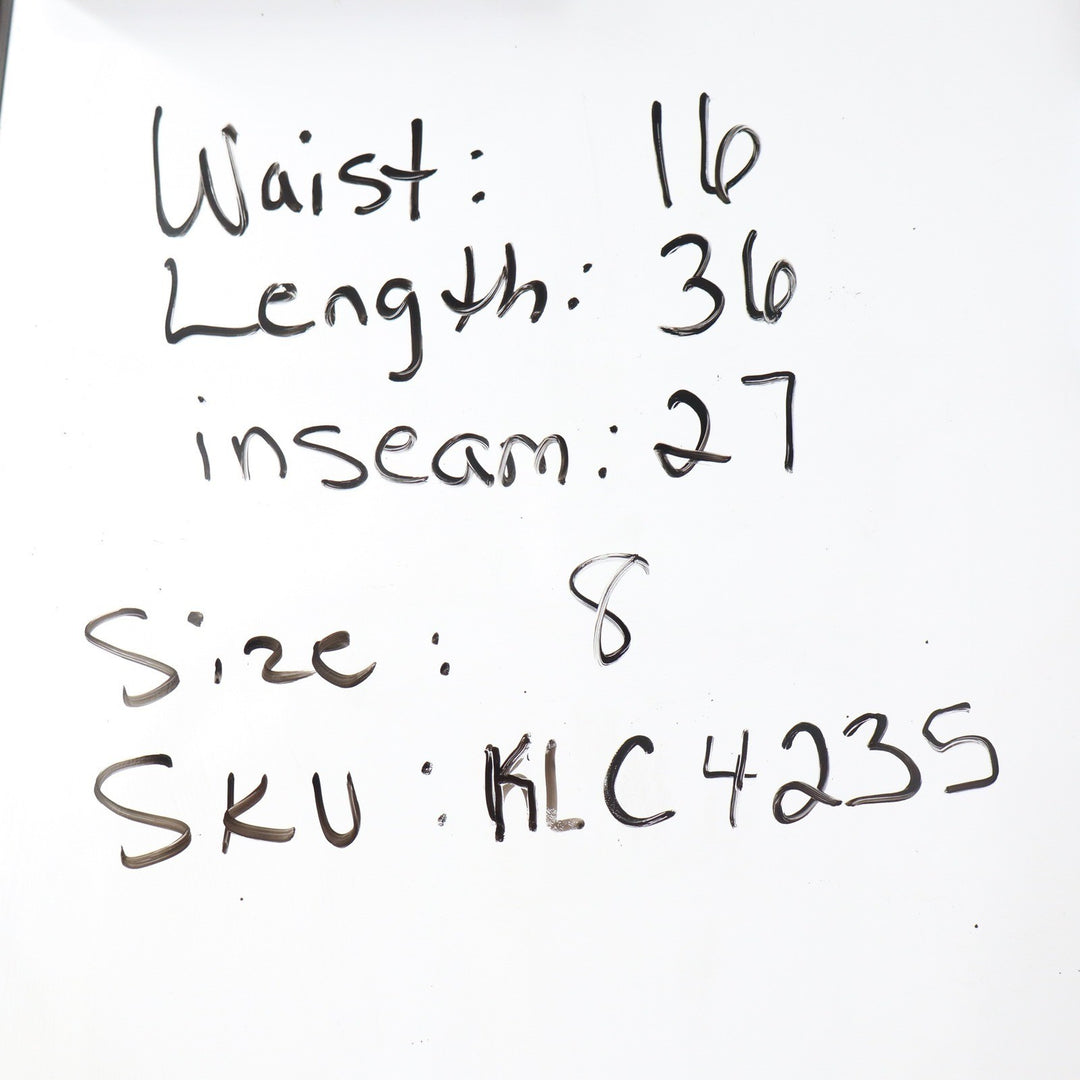 Waist: 16
Length: 36
inseam: 27
Size: 8
SKU: KLC4235